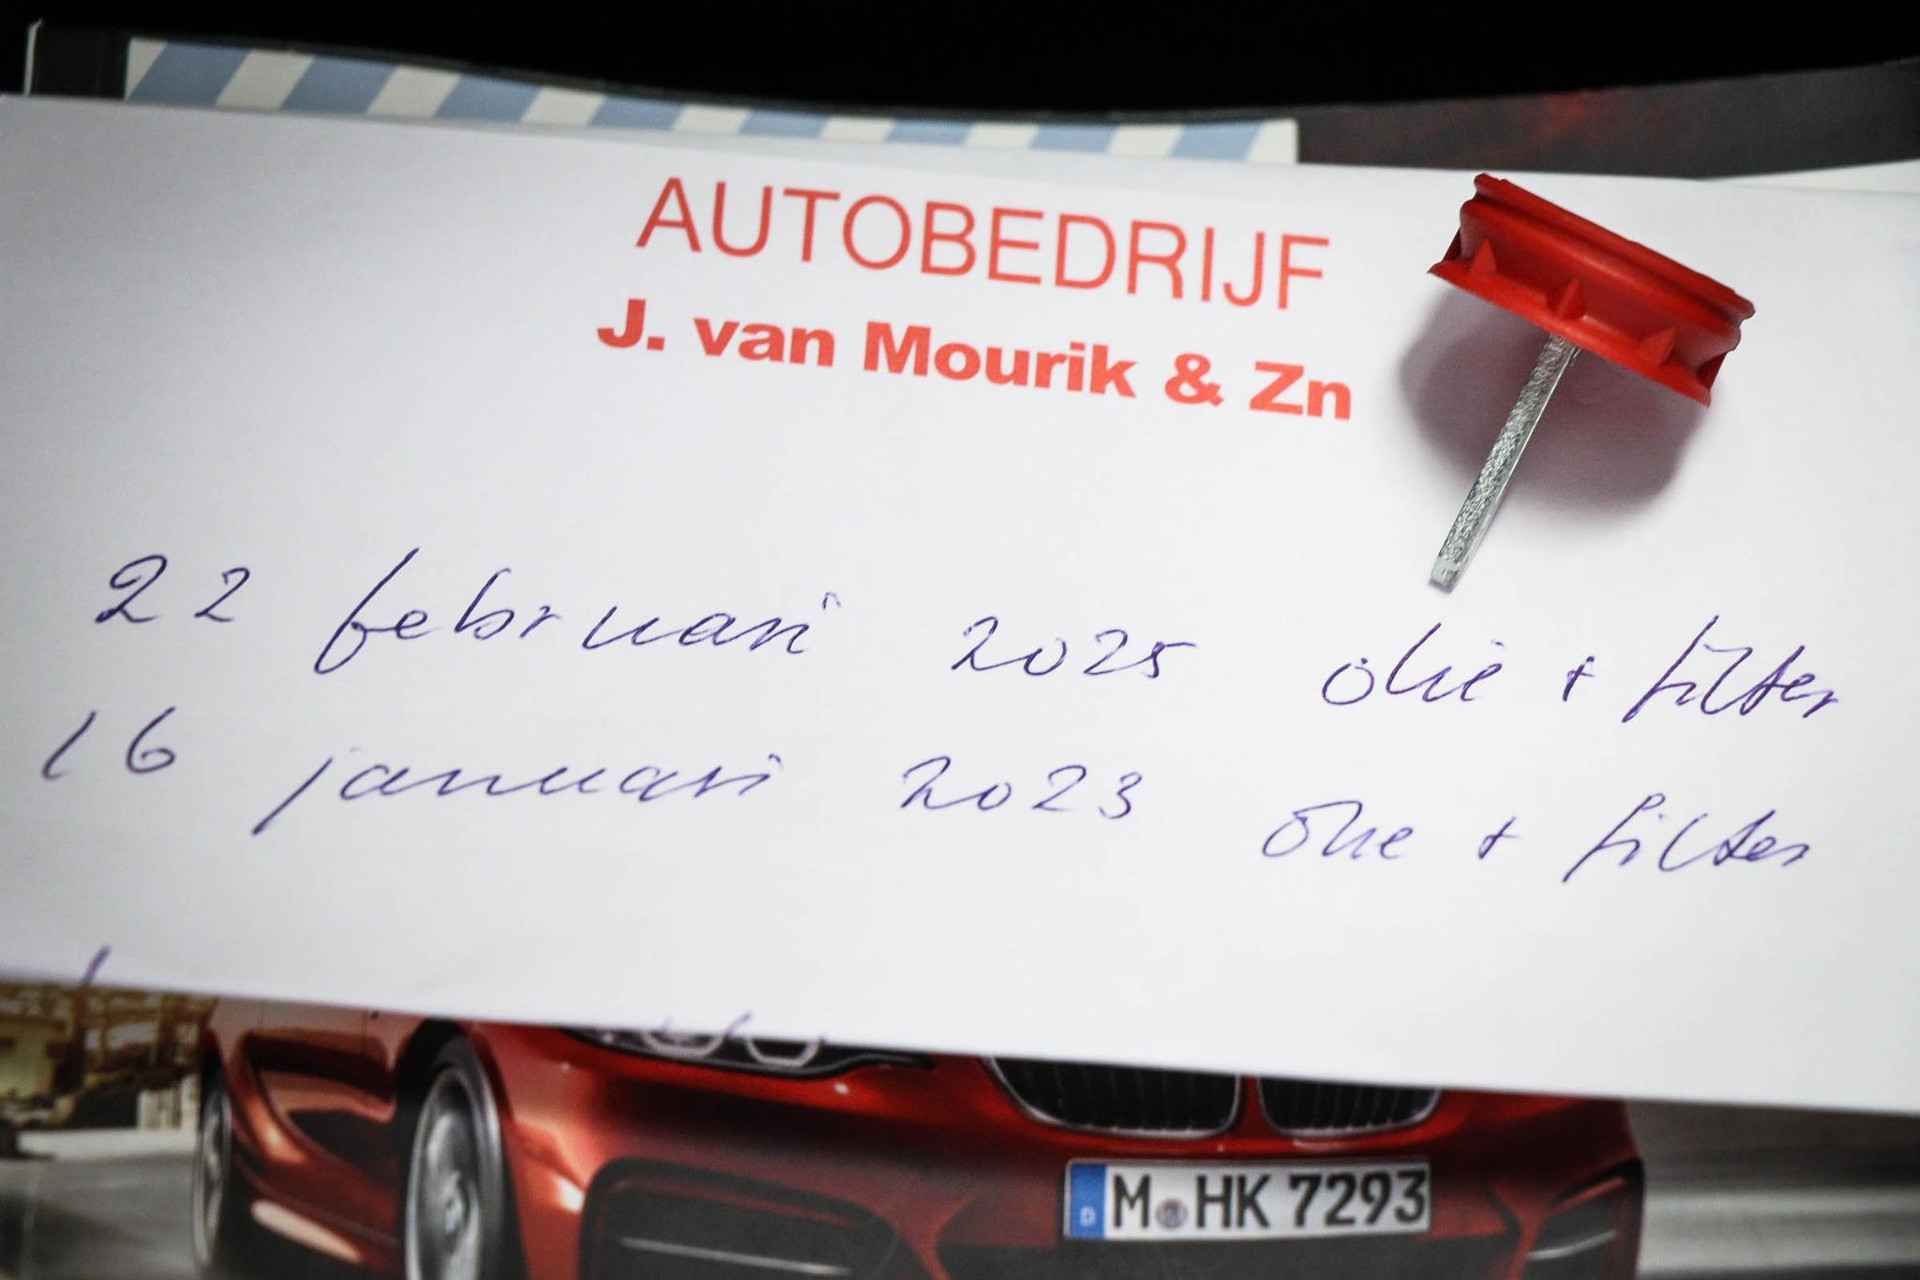 AUTOBEDRIJF
J. van Mourik & Zn
22 februari 2025 olie + filter
16 januari 2023 olie + filter
D M HK 7293